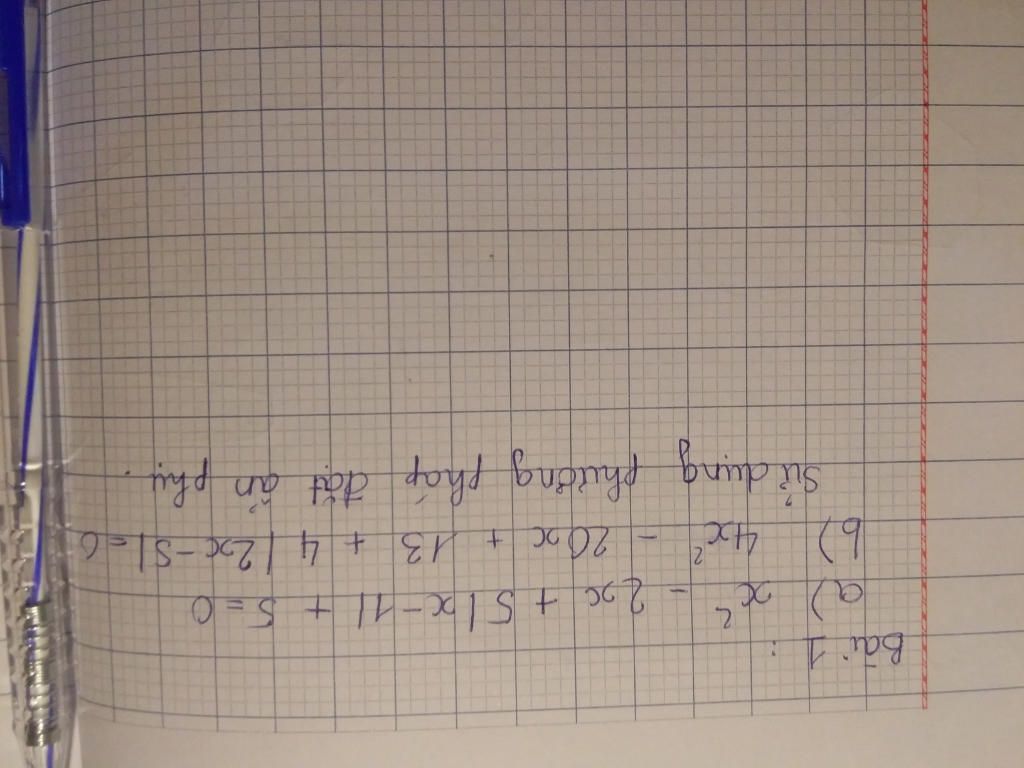 Bài 1 :
a) x² - 2x + 5|x-1| + 5 = 0
b) 4x² - 20x + 13 + 4|2x-5| = 0
Sử dụng phương pháp đặt ẩn phụ.